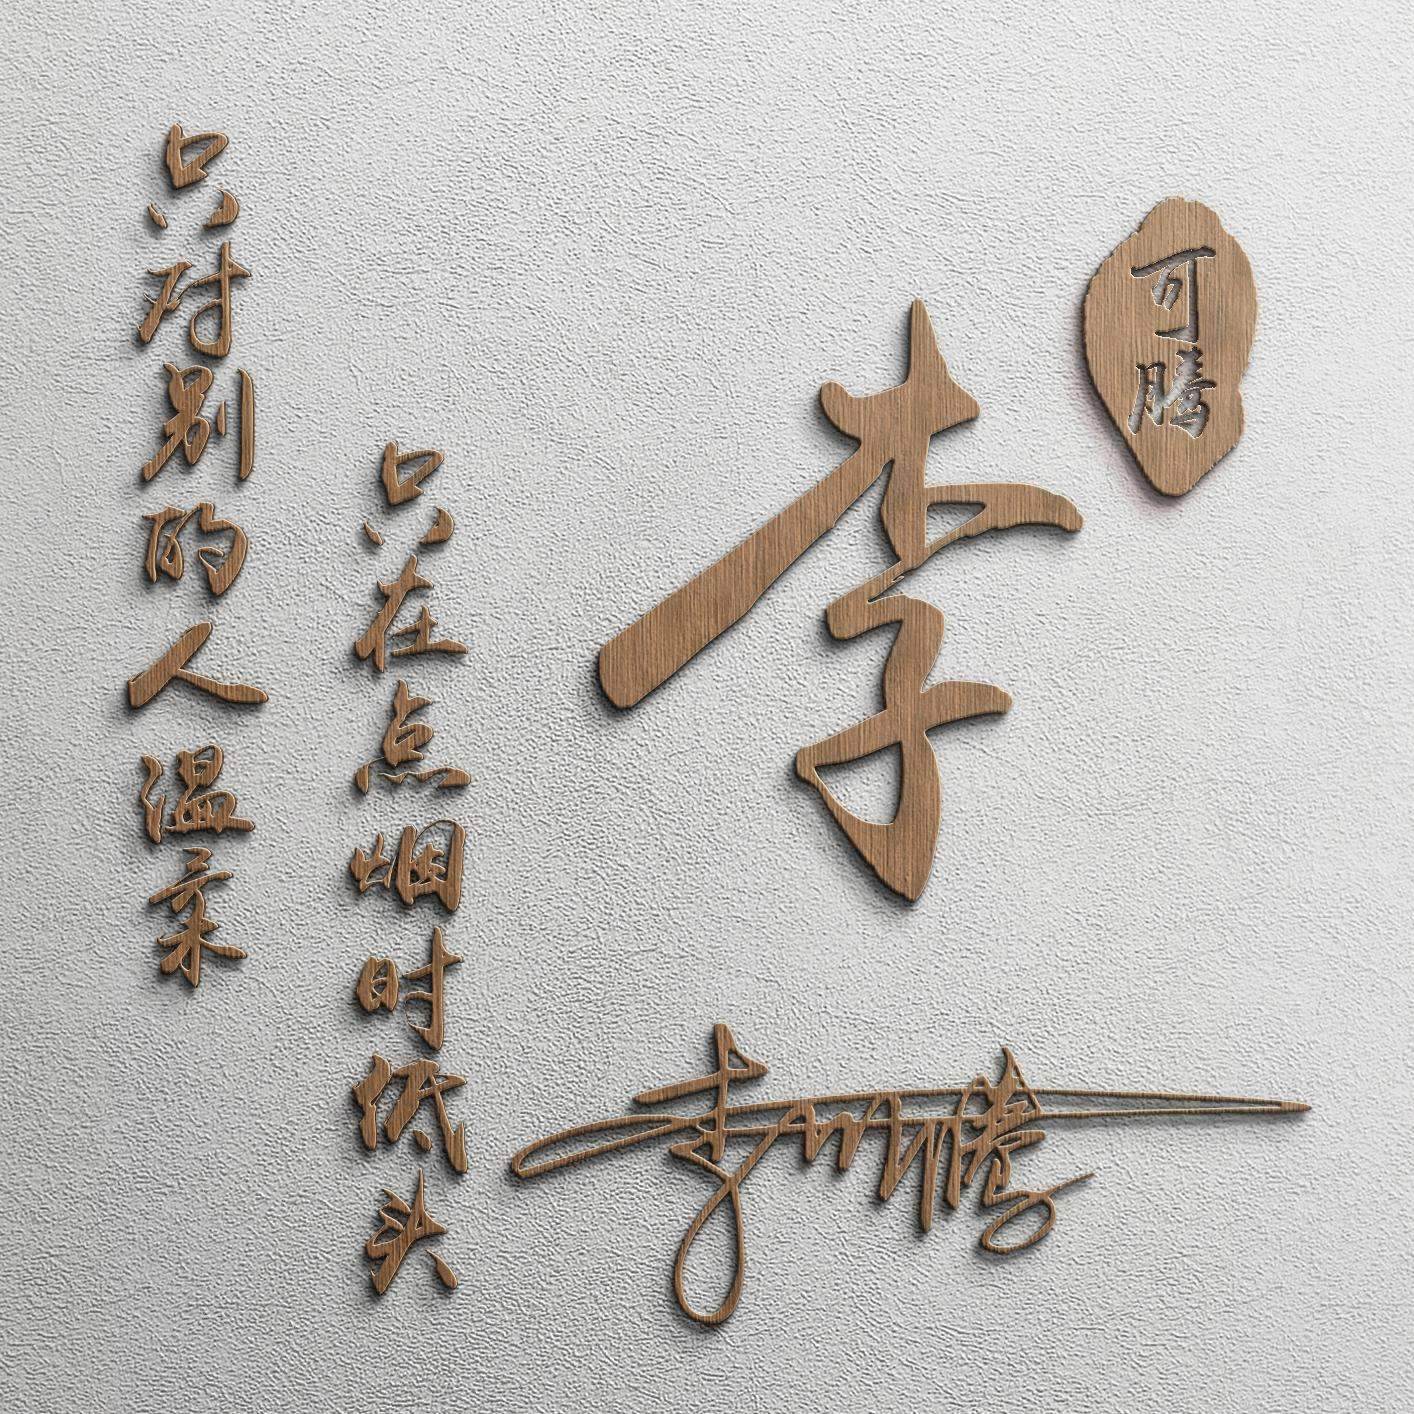 李
可腾
只在点烟时低头
只对别的人温柔